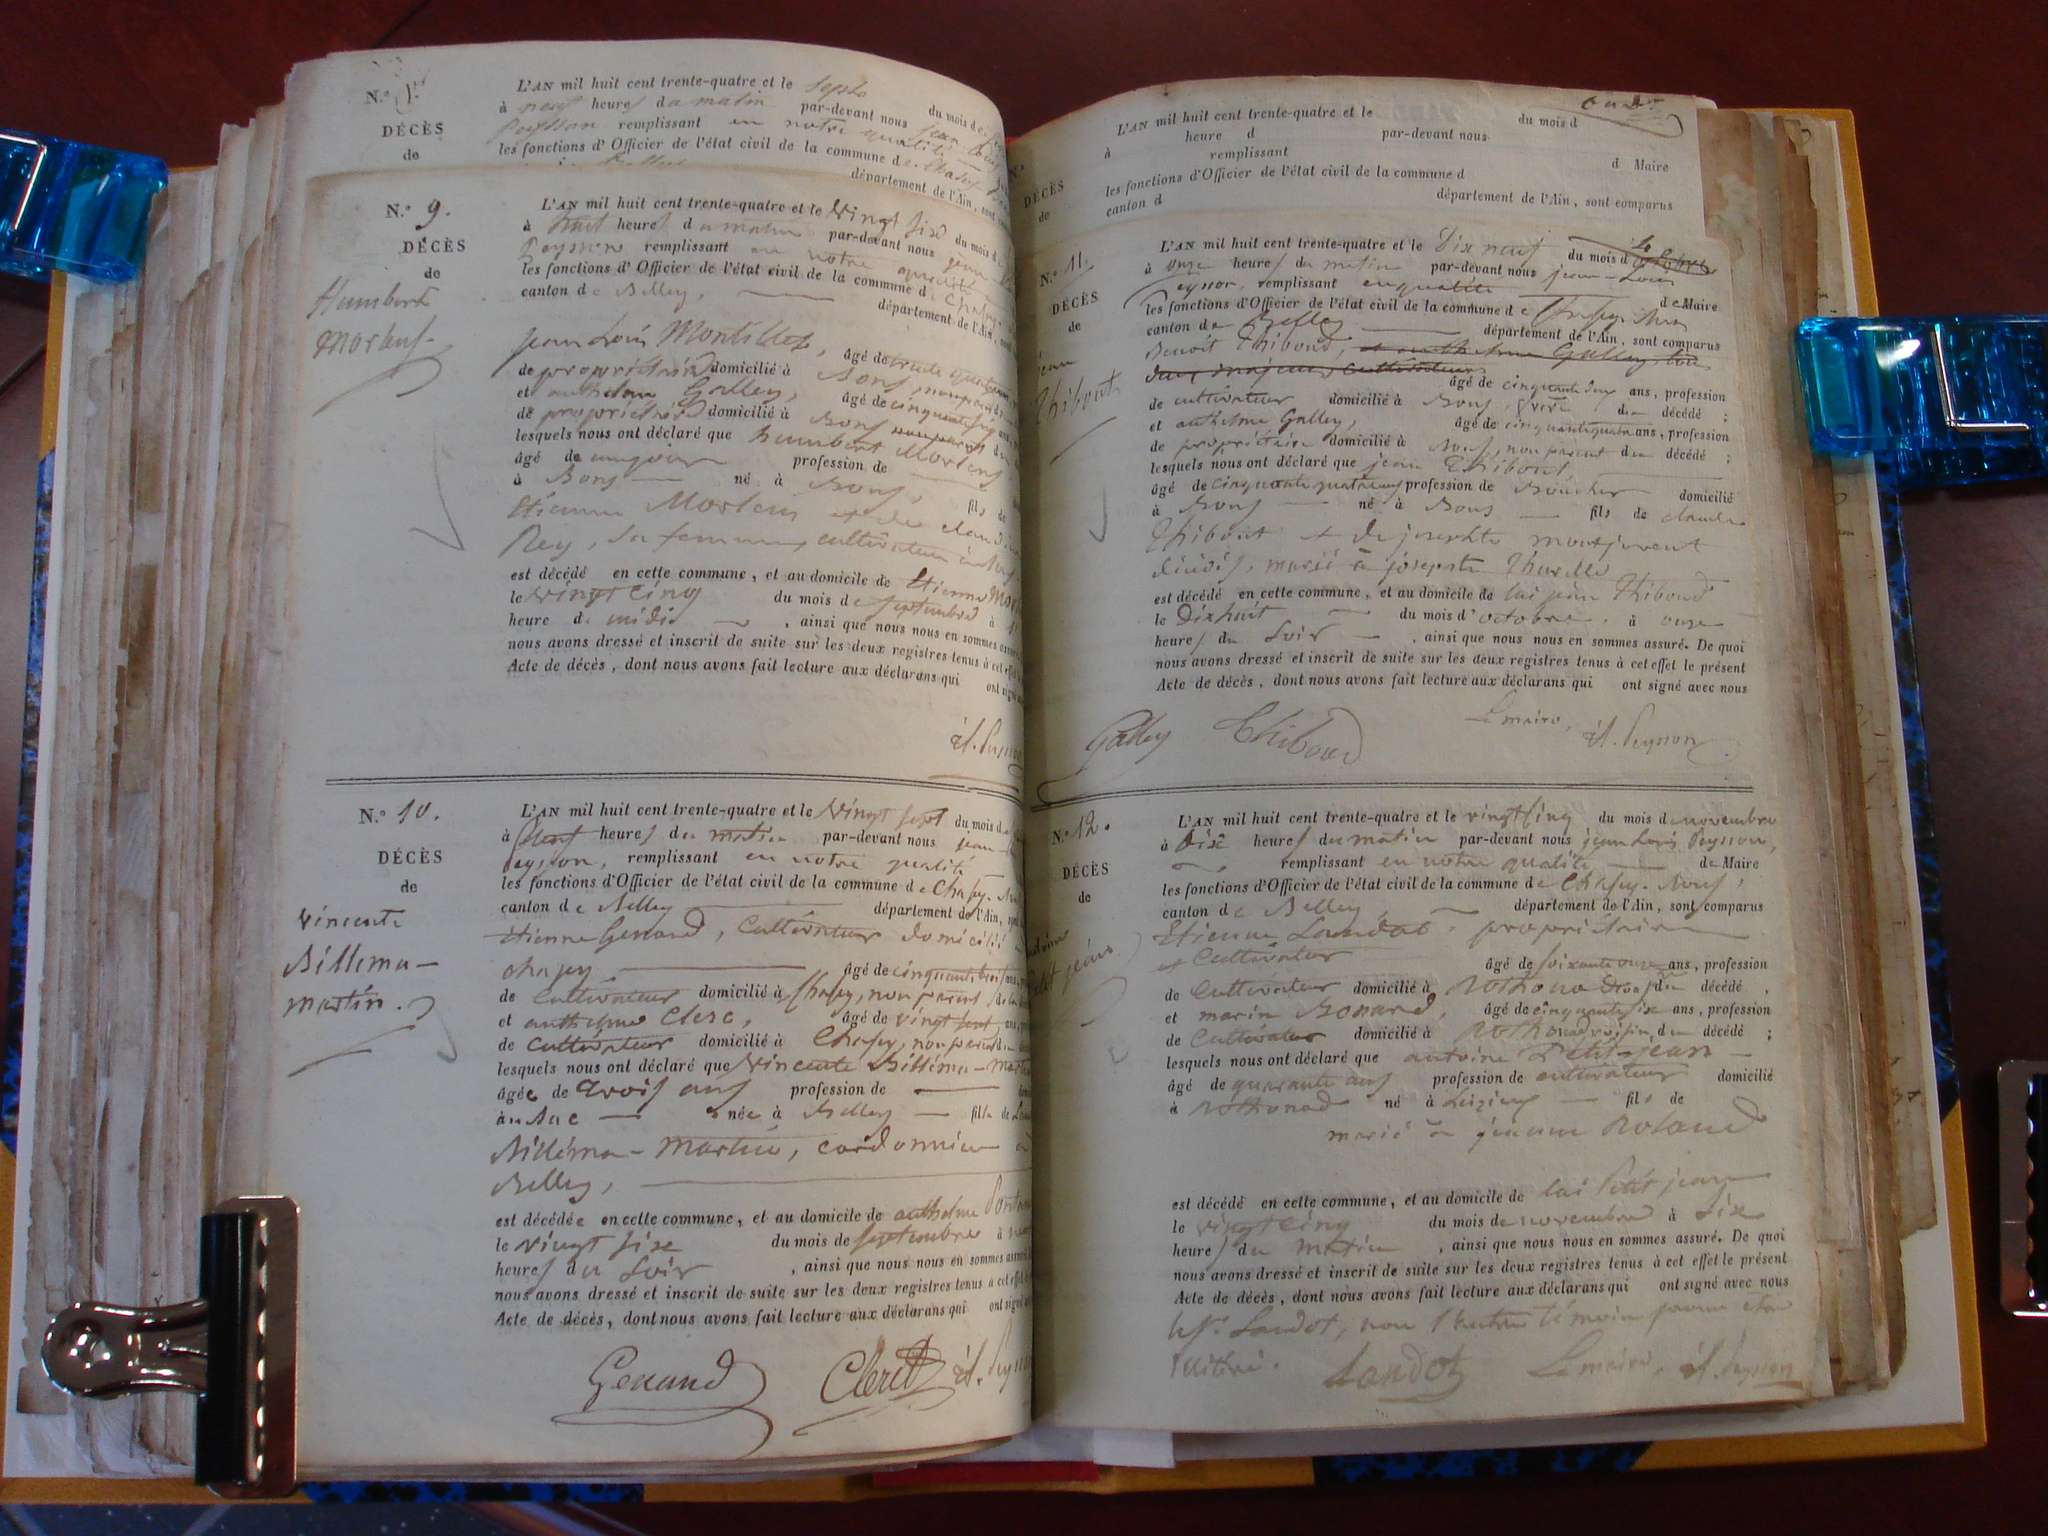 N.°
DÉCÈS
de
L'AN mil huit cent trente-quatre et le Septe du mois de
à neuf heures du matin par-devant nous jean Louis
Peysson remplissant en notre qualité
les fonctions d'Officier de l'état civil de la commune de Chazey
département de l'Ain, sont
N.° 9.
DÉCÈS
de
Humbert
Morlens
L'AN mil huit cent trente-quatre et le vingt six du mois d
à huit heures du matin par-devant nous jean
Peysson remplissant en notre qualité
les fonctions d'Officier de l'état civil de la commune de Chazey
canton de Belley, département de l'Ain,
jean Louis Montillet, âgé de trente quatre
de propriétaire domicilié à Bons, non parent
et anthelme Galley, âgé de cinquante
de propriétaire domicilié à Bons non parent
lesquels nous ont déclaré que humbert Morlens
âgé de un jour profession de
à Bons né à Bons, fils de
Etienne Morlens et de claudine
Rey, sa femme, cultivateur à Bons
est décédé en cette commune, et au domicile de Etienne Mor
le vingt cinq du mois de septembre à
heure de midi, ainsi que nous nous en sommes assuré
nous avons dressé et inscrit de suite sur les deux registres tenus à cet effet
Acte de décès, dont nous avons fait lecture aux déclarans qui ont signé
N.° 10.
DÉCÈS
de
vincente
Billéma-
martin.
L'AN mil huit cent trente-quatre et le vingt sept du mois d
à neuf heures du matin par-devant nous jean
Peysson, remplissant en notre qualité
les fonctions d'Officier de l'état civil de la commune de Chazey
canton de Belley département de l'Ain,
Etienne Genand, cultivateur domicilié
chazey âgé de cinquante trois
de cultivateur domicilié à Chazey, non parent
et anthelme Clerc, âgé de vingt sept ans
de cultivateur domicilié à Chazey, non parent
lesquels nous ont déclaré que vincente Billéma-mart
âgée de trois ans profession de
née à Belley fille de
Billéma-martin, cordonnier
Belley,
est décédée en cette commune, et au domicile de anthelme
le vingt six du mois de septembre à
heures du soir, ainsi que nous nous en sommes assuré
nous avons dressé et inscrit de suite sur les deux registres tenus à cet effet
Acte de décès, dont nous avons fait lecture aux déclarans qui ont signé
Genand Clerc
L'AN mil huit cent trente-quatre et le du mois d
à heure d par-devant nous
remplissant d Maire
les fonctions d'Officier de l'état civil de la commune d
canton d département de l'Ain, sont comparus
DÉCÈS
de
N.° 11.
DÉCÈS
de
jean
Thibout
L'AN mil huit cent trente-quatre et le Dix neuf du mois d'octobre
à onze heures du matin par-devant nous jean-Louis
Peysson, remplissant en qualité de Maire
les fonctions d'Officier de l'état civil de la commune de Chazey-Bons
canton de Belley département de l'Ain, sont comparus
Benoit Thiboud, et anthelme Galley tous
deux majeurs, cultivateurs âgé de cinquante deux ans, profession
de cultivateur domicilié à Bons, frère du décédé;
et anthelme Galley, âgé de cinquante quatre ans, profession
de propriétaire domicilié à Bons, non parent du décédé;
lesquels nous ont déclaré que jean Thibout
âgé de cinquante quatre ans profession de Boucher domicilié
à Bons né à Bons fils de claude
Thibout et de josephte montjuvent
décédés, marié à josephte
est décédé en cette commune, et au domicile de lui jean Thiboud
le Dixhuit du mois d'octobre, à onze
heures du soir, ainsi que nous nous en sommes assuré. De quoi
nous avons dressé et inscrit de suite sur les deux registres tenus à cet effet le présent
Acte de décès, dont nous avons fait lecture aux déclarans qui ont signé avec nous
Le maire,
Galley Thiboud jl. Peysson
N.° 12.
DÉCÈS
de
Petit jean
L'AN mil huit cent trente-quatre et le vingt cinq du mois de novembre
à dix heures du matin par-devant nous jean Louis Peysson,
remplissant en notre qualité de Maire
les fonctions d'Officier de l'état civil de la commune de Chazey-Bons,
canton de Belley département de l'Ain, sont comparus
Etienne Landot, propriétaire
et Cultivateur âgé de soixante onze ans, profession
de Cultivateur domicilié à Rothonod du décédé,
et marin Bonard, âgé de cinquante six ans, profession
de Cultivateur domicilié à Rothonod voisin du décédé;
lesquels nous ont déclaré que antoine Petit-jean
âgé de quarante ans profession de cultivateur domicilié
à Rothonod né à fils de
marié à jeanne Roland
est décédé en cette commune, et au domicile de lui Petit jean
le vingt cinq du mois de novembre à six
heures du matin, ainsi que nous nous en sommes assuré. De quoi
nous avons dressé et inscrit de suite sur les deux registres tenus à cet effet le présent
Acte de décès, dont nous avons fait lecture aux déclarans qui ont signé avec nous
le sr. Landot, non l'autre témoin pour être
illitéré. Landot Le maire, jl. Peysson